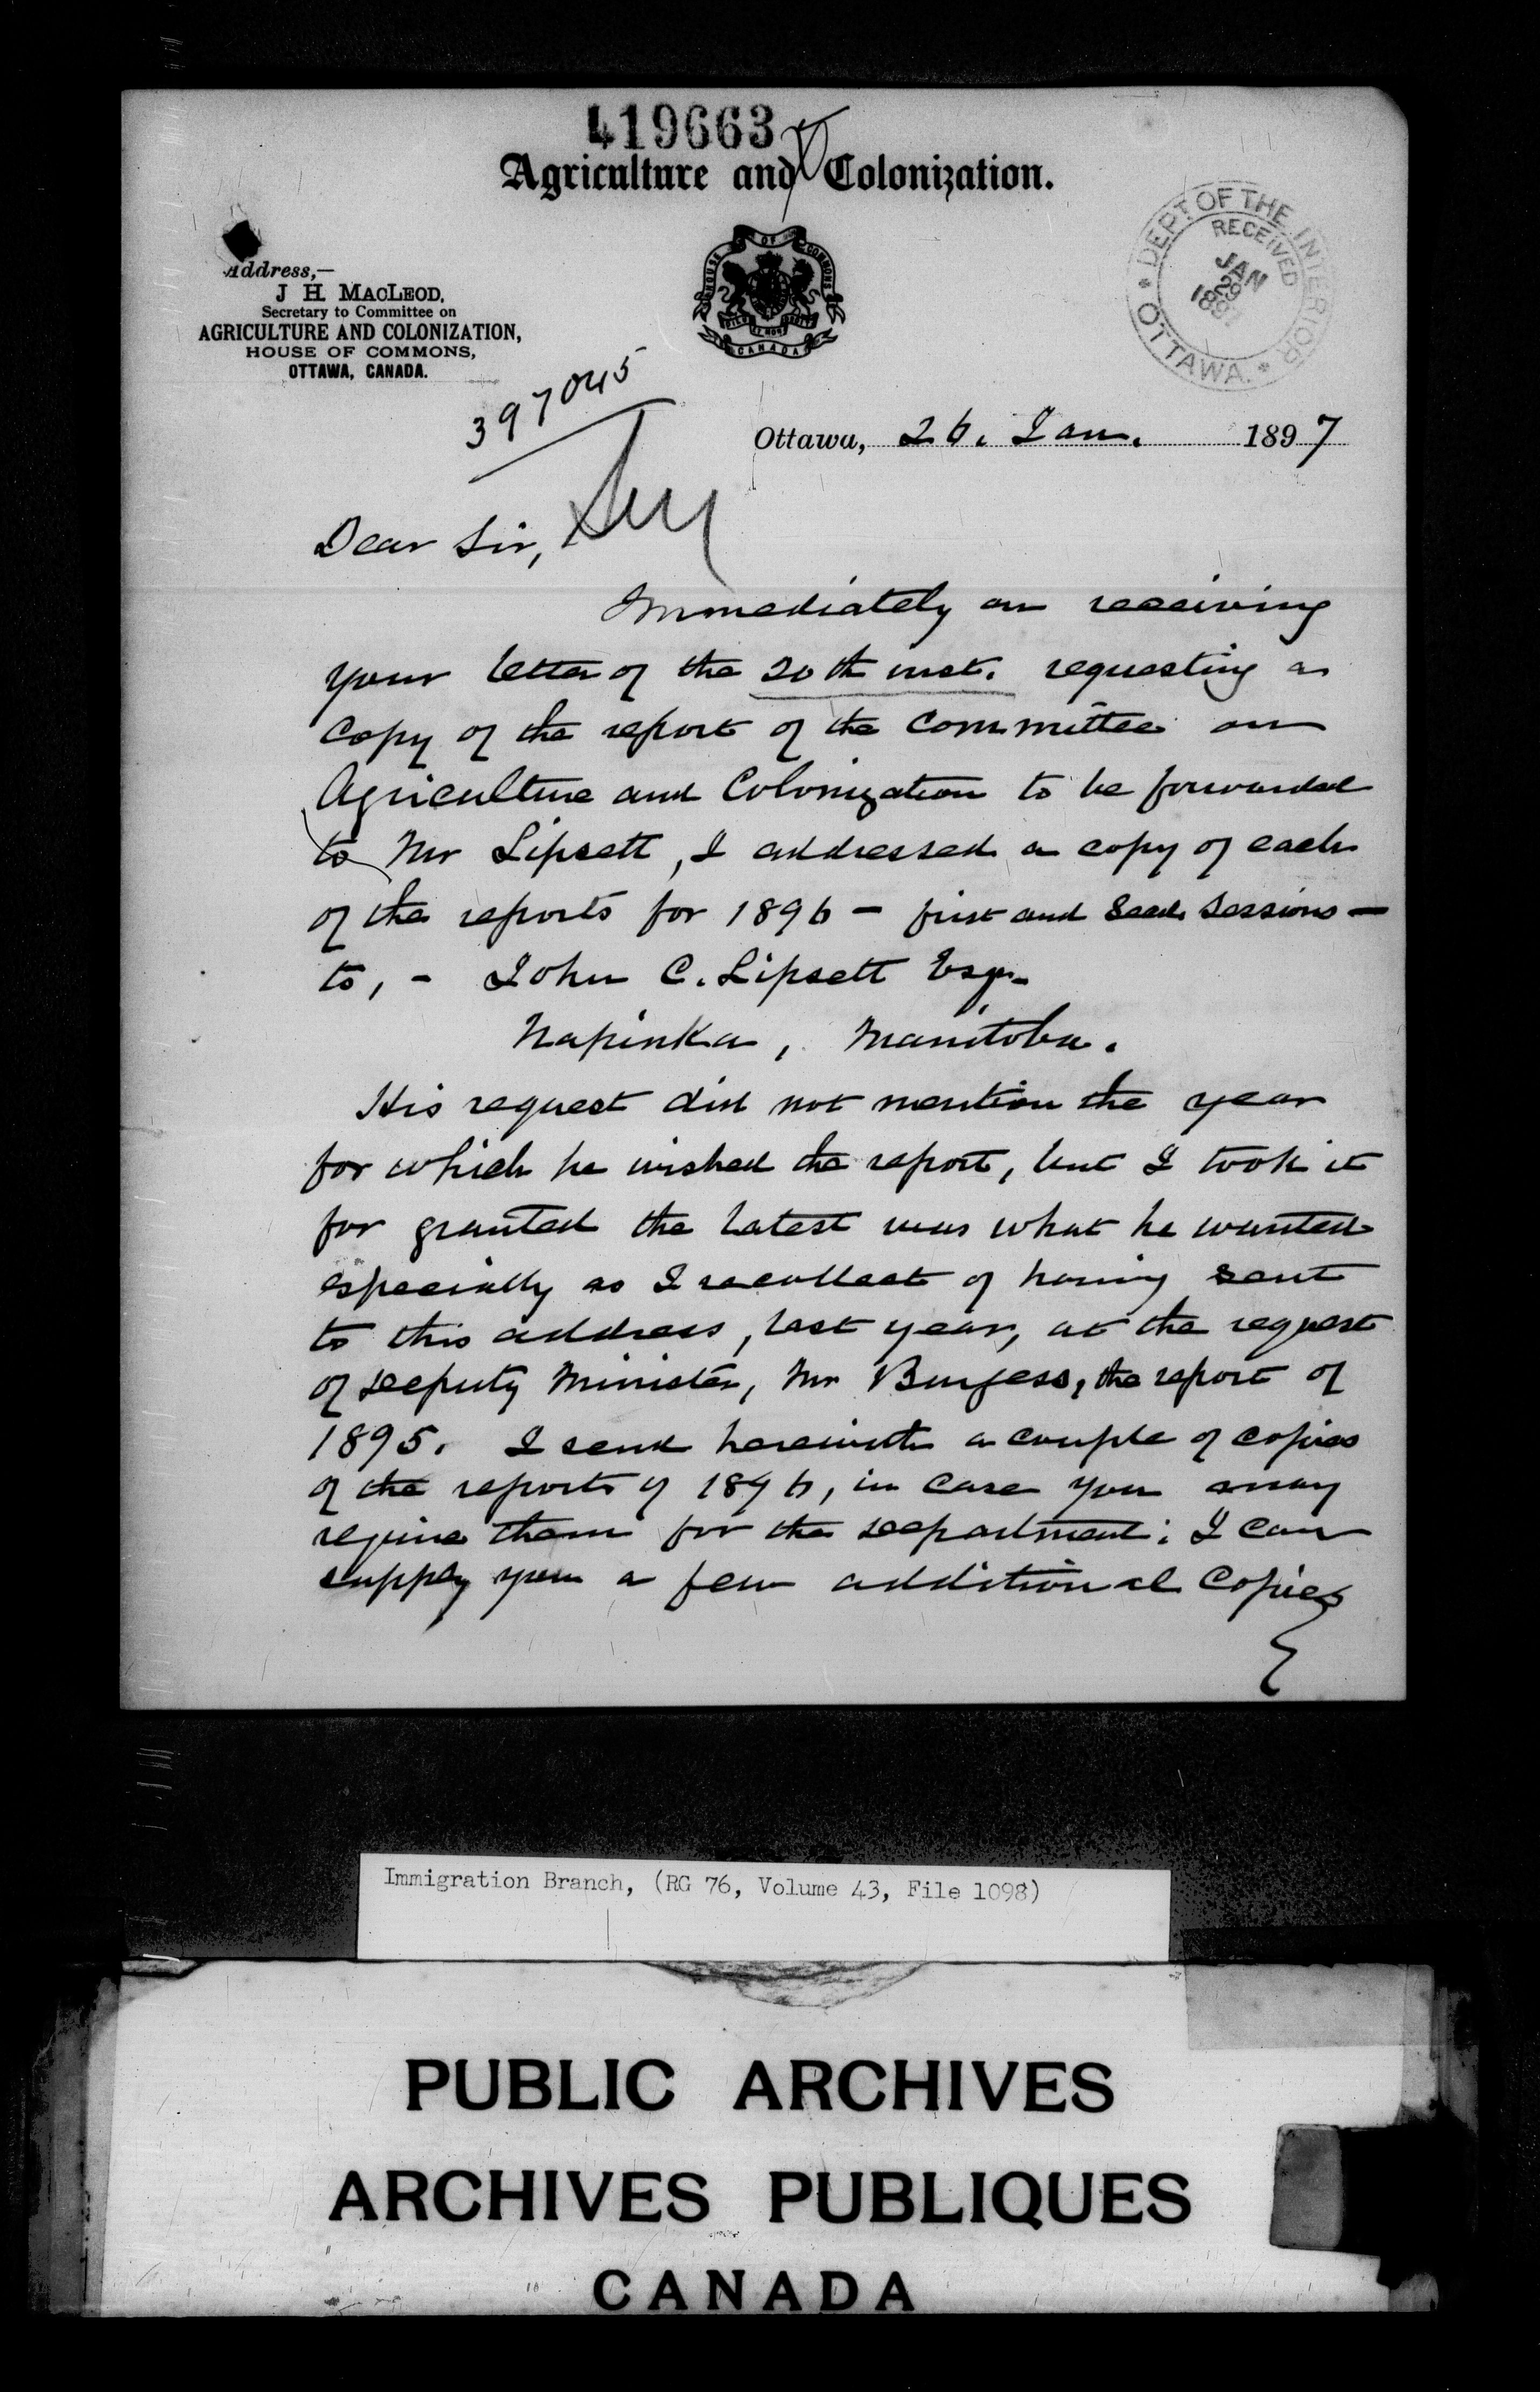 419663
Agriculture and Colonization.
Address,—
J H. MACLEOD,
Secretary to Committee on
AGRICULTURE AND COLONIZATION,
HOUSE OF COMMONS,
OTTAWA, CANADA.
HOUSE OF COMMONS
CANADA
DEPT. OF THE INTERIOR
RECEIVED
JAN
29
1897
OTTAWA.
397045
Ottawa, 26. Jan. 1897
Dear Sir,
Immediately on receiving
your letter of the 20th inst. requesting a
copy of the report of the Committee on
Agriculture and Colonization to be forwarded
to Mr Lipsett, I addressed a copy of each
of the reports for 1896 – first and Secd. Sessions –
to, – John C. Lipsett Esqr.
Napinka, Manitoba.
His request did not mention the year
for which he wished the report, but I took it
for granted the latest was what he wanted
especially as I recollect of having sent
to this address, last year, at the request
of Deputy Minister, Mr Burgess, the report of
1895. I send herewith a couple of copies
of the reports of 1896, in case you may
require them for the Department. I can
supply you a few additional Copies
Immigration Branch, (RG 76, Volume 43, File 1098)
PUBLIC ARCHIVES
ARCHIVES PUBLIQUES
CANADA